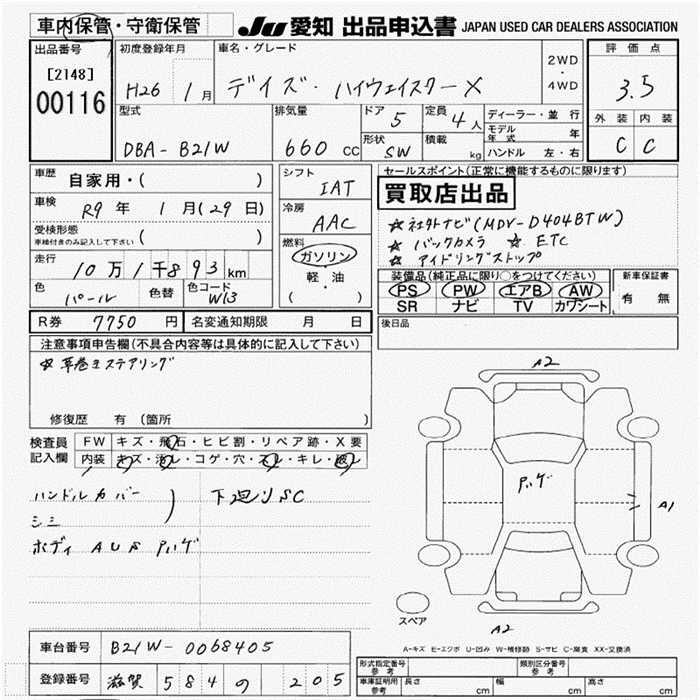 車内保管・守衛保管
JU 愛知 出品申込書 JAPAN USED CAR DEALERS ASSOCIATION
出品番号
[2148]
00116
初度登録年月
H26 1月
車名・グレード
デイズ・ハイウェイスターX
2WD
・
4WD
評価点
3.5
外装 内装
C C
型式
DBA-B21W
排気量
660 cc
ドア
5
定員
4人
形状
SW
積載
kg
ディーラー・並行
モデル年式 年
ハンドル 左・右
車歴
自家用・( )
車検
R9年 1月(29日)
受検形態
車検付きのみ記入して下さい ( )
走行
10万1千893km
色
パール
色替
色コード
W13
シフト
IAT
冷房
AAC
燃料
ガソリン
・
軽・油
( )
セールスポイント(正常に機能するものに限ります)
買取店出品
☆社外ナビ(MDV-D404BTW)
☆バックカメラ ☆ETC
☆アイドリングストップ
装備品(純正品に限り○をつけてください)
PS PW エアB AW
SR ナビ TV カワシート
新車保証書
有 無
R券 7750円
名変通知期限 月 日
後日品
注意事項申告欄(不具合内容等は具体的に記入して下さい)
☆革巻きステアリング
修復歴 有 (箇所 )
検査員記入欄
FW キズ・飛石・ヒビ割・リペア跡・X要
内装 キズ・汚レ・コゲ・穴・スレ・キレ・破レ
ハンドルカバー
シミ
下廻りSC
ボディ AUS Pハゲ
A2
Pハゲ
A1
スペア
A2
A-キズ E-エクボ U-凹み W-補修跡 S-サビ C-腐食 XX-交換済
車台番号 B21W-0068405
登録番号 滋賀 584 の 205
型式指定番号
参考
類別区分番号
参考
車庫証明用
参考
長さ cm
幅 cm
高さ cm